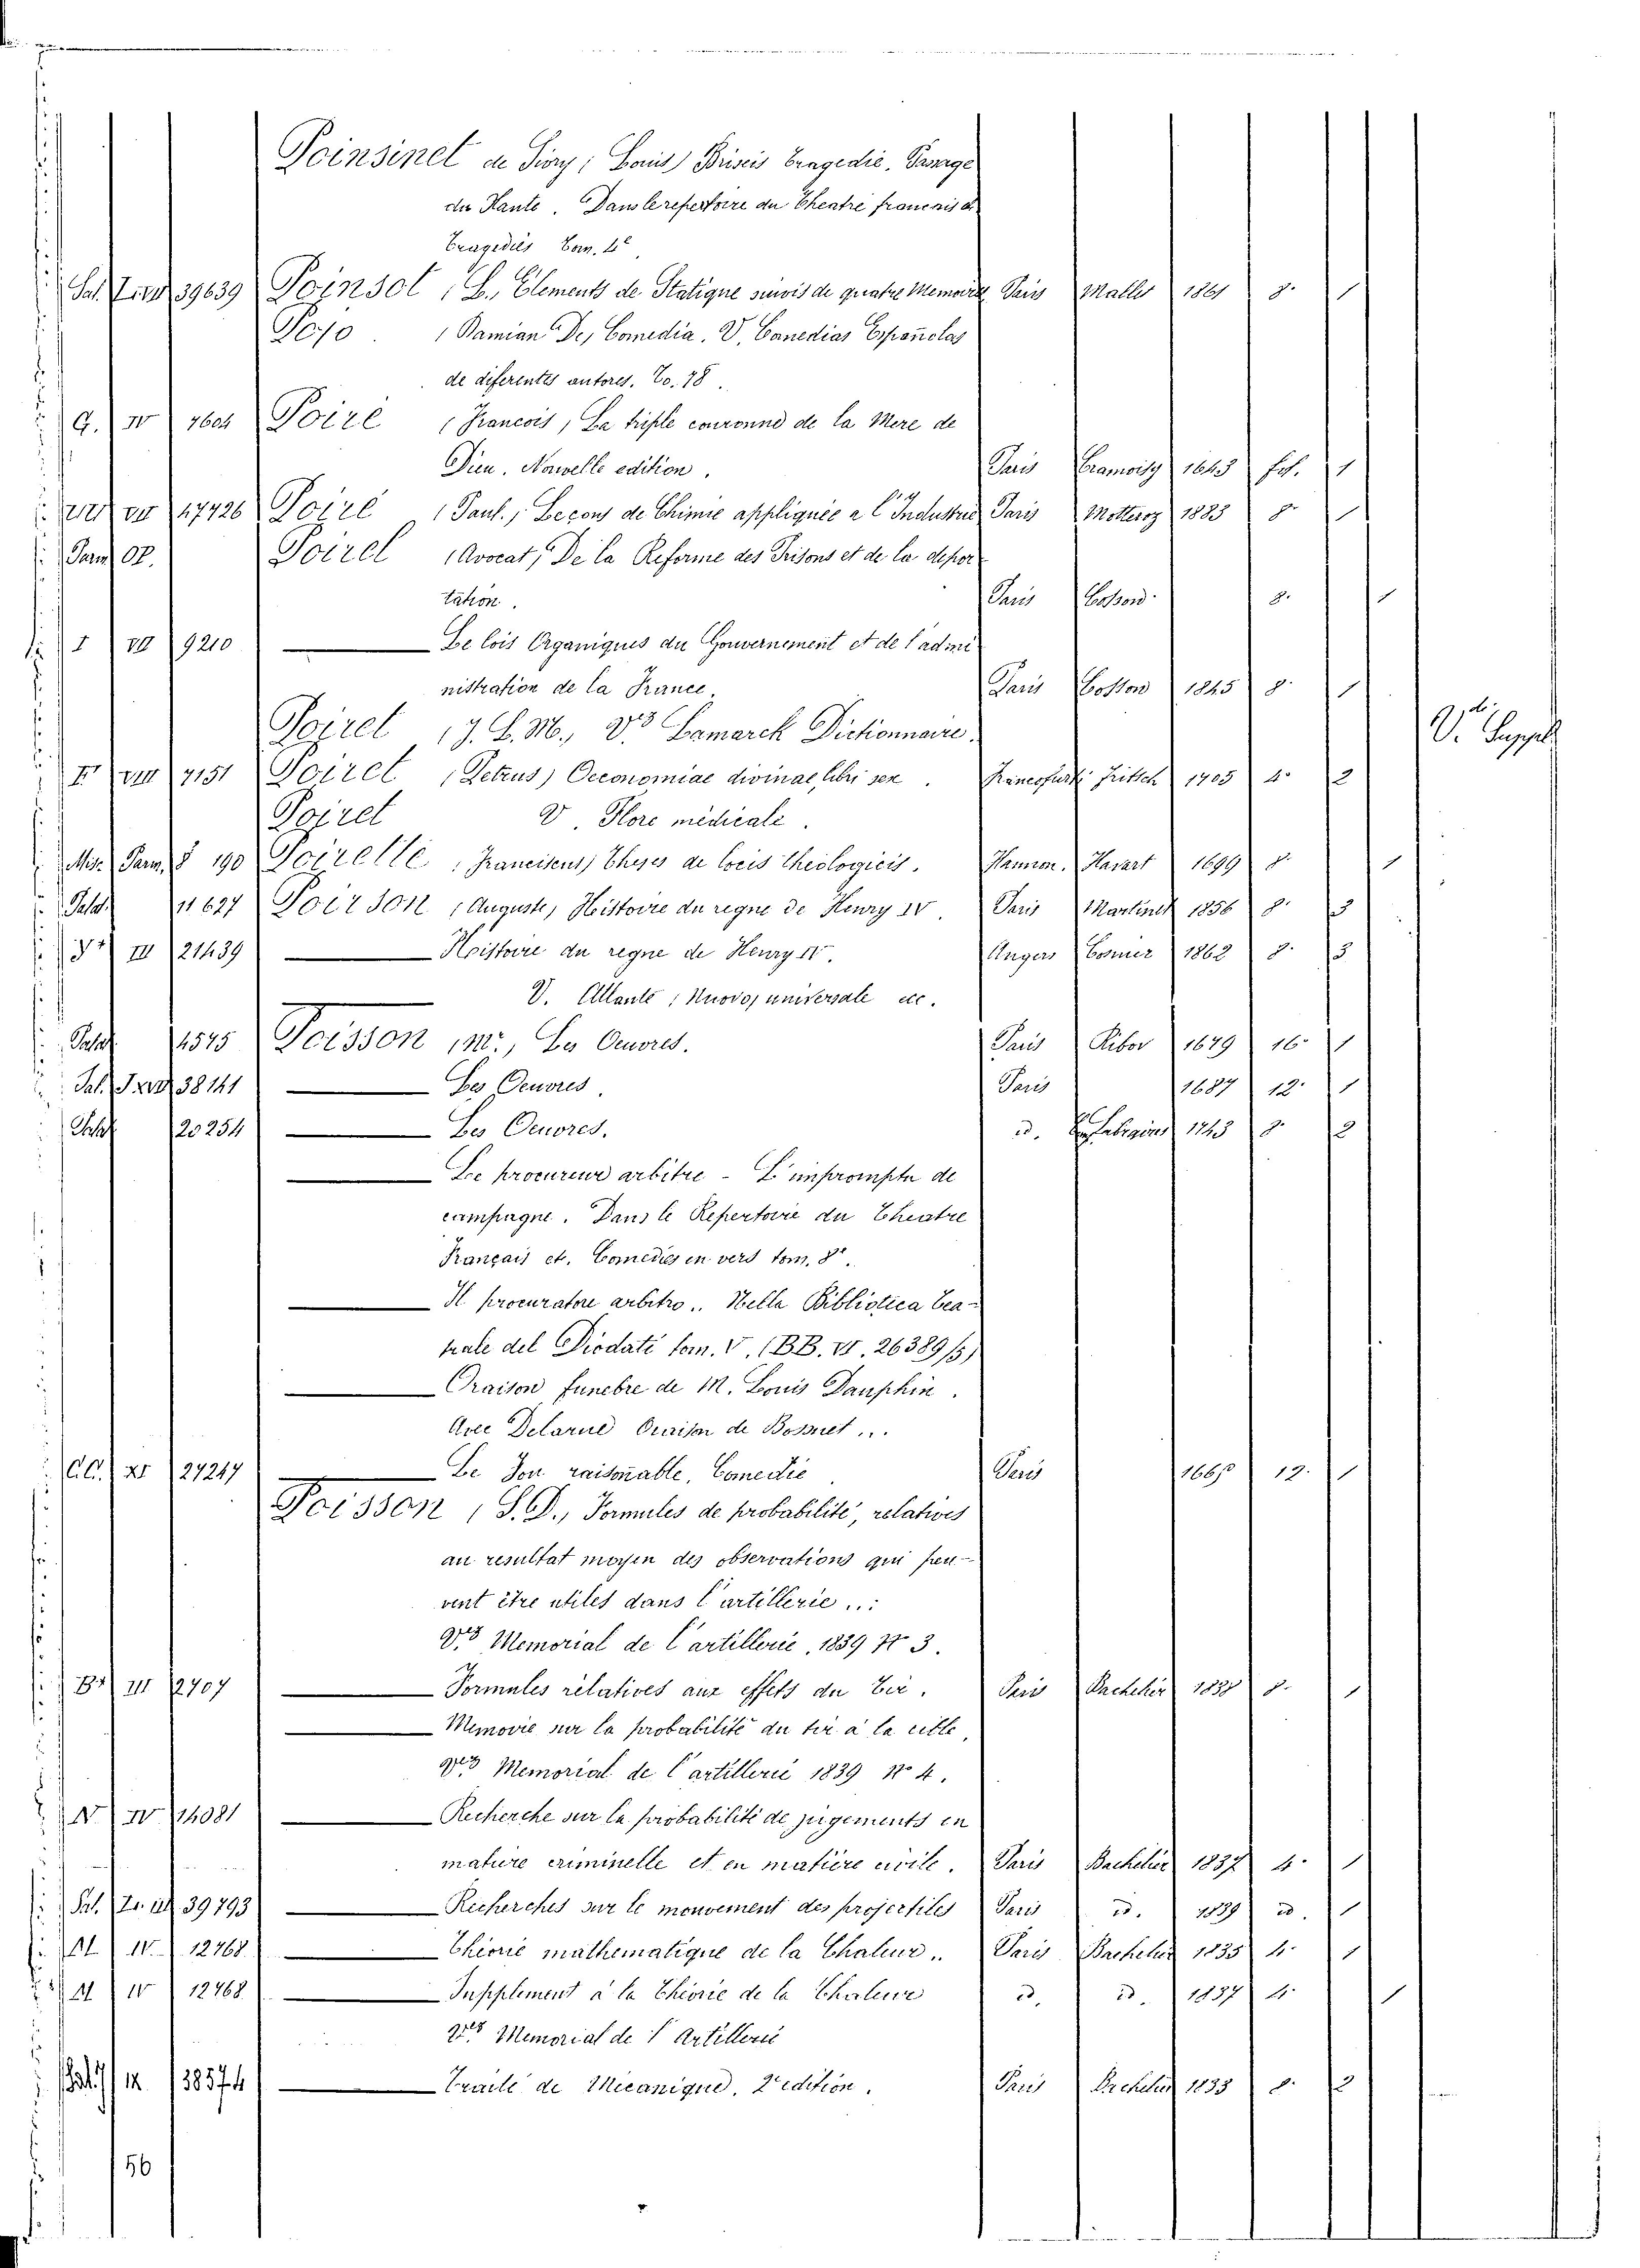 Poinsinet de Sivry, Louis) Briseis Tragedie.
du Hante. Dans le repertoire du Theatre francais
Tragedies Tom. 4e
Sal. 39639 Poinsot, L., Elements de Statique suivis de quatre Memoire Paris Mallet 1861 8° 1
Poyo (Damian De, Comedia. V. Comedias Españolas
de diferentes autores. To. 78.
G. IV 7604 Poiré (Francois, La triple couronne de la Mere de
Dieu. Nouvelle edition. Paris Cramoisy 1643 fol. 1
VII 47726 Poiré (Paul., Leçons de Chimie appliquée a l'Industrie Paris Motteroz 1883 8° 1
Parm OP. Poirel (Avocat, De la Reforme des Prisons et de la depor
tation. Paris Cosson 8° 1
I VII 9210 Le lois Organiques du Gouvernement et de l'admi
nistration de la France. Paris Cosson 1845 8° 1
Poiret, J. L. M., V. Lamarck Dictionnaire. V. Suppl
VIII 7151 Poiret (Petrus) Oeconomiae divinae, libri sex. Francofurti Fritsch 1705 4° 2
Poiret V. Flore médicale.
Misc. Parm. 8° 190 Poirelle, Franciscus, Theses de locis theologicis. Hannon. Havart 1699 8° 1
Palat. 11627 Poirson, Auguste, Histoire du regne de Henry IV. Paris Martinet 1856 8° 3
III 21439 Histoire du regne de Henry IV. Angers Cosnier 1862 8° 3
V. Atlante, Nuovo, universale ecc.
Palat 4545 Poisson, Mr., Les Oeuvres. Paris Ribou 1679 16° 1
Pal. 38141 Les Oeuvres. Paris 1687 12° 1
Palat 20254 Les Oeuvres. id. 1743 8° 2
Le procureur arbitre - L'impromptu de
campagne. Dans le Repertoire du Theatre
Français et. Comedies en vers tom. 8°.
Il procuratore arbitro.. Nella Bibliotica tea-
trale del Diodati tom. V. (BB. VI. 26389/5)
Oraison funebre de M. Louis Dauphin.
Avec Delarue Oraison de Bossuet...
CC. XI 27247 Le Fou raisonable, Comedie Paris 12. 1
Poisson, S. D., Formules de probabilité, relatives
au resultat moyen des observations qui peu-
vent être utiles dans l'artillerie..:
V. Memorial de l'artillerie, 1839 N° 3.
III 2707 Formules relatives aux effets du tir. Paris Bachelier 8° 1
Memoire sur la probabilité du tir à la cible
V. Memorial de l'artillerie 1839 N° 4.
N IV 14081 Recherche sur la probabilité de jugements en
matière criminelle et en matière civile. Paris Bachelier 1837 4° 1
Pal. 39793 Recherches sur le mouvement des projectiles Paris id. 1839 id. 1
IV 12768 Théorie mathematique de la Chaleur.. Paris Bachelier 1835 4° 1
IV 12768 Supplement à la Théorie de la Chaleur id. id. 1837 4° 1
V. Memorial de l'Artillerie
IX 38574 Traité de Mécanique, 2e edition. Paris Bachelier 1833 8° 2
56